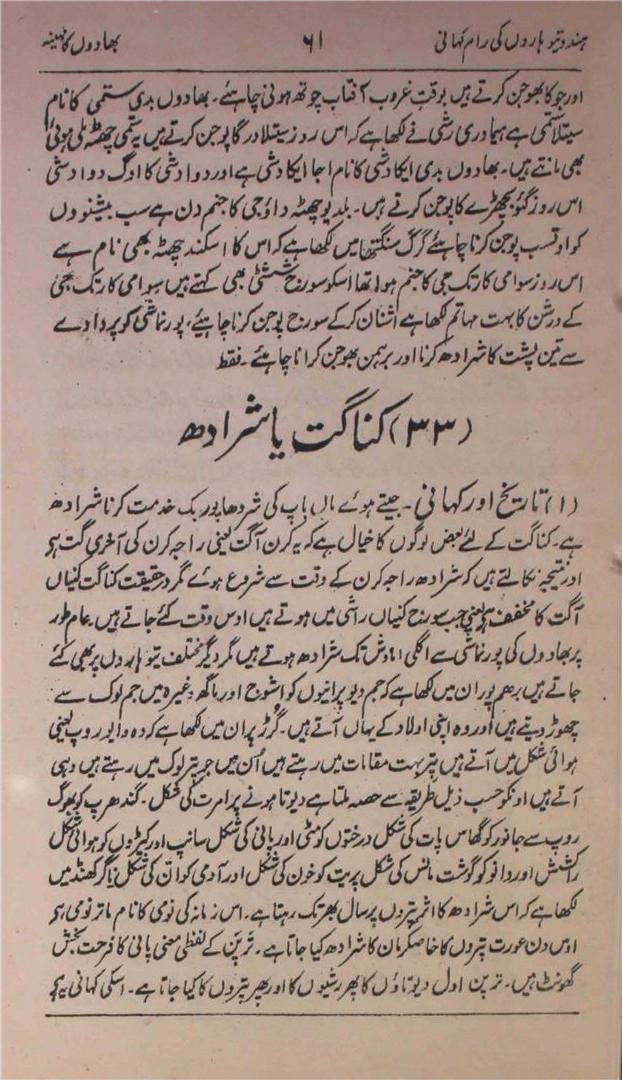 ہندو تیوہاروں کی رام کہانی ۶۱ بھادوں کا مہینہ
اور جو کا بھوجن کرتے ہیں بوقتِ غروب آفتاب چوتھ ہونی چاہئے۔ بھادوں بدی ستمی کا نام
سیتلا ستمی ہے ہمادری رشی نے لکھا ہے کہ اس روز سیتلا درگا پوجن کرتے ہیں یہ ستمی چھٹھ ملی ہوئی
بھی مانتے ہیں۔ بھادوں بدی ایکادشی کا نام اجا ایکادشی ہے اور دوادشی کا اوگ دوادشی
اس روز گئو بچھڑے کا پوجن کرتے ہیں۔ بلدیو چھٹھ داؤجی کا جنم دن ہے سب بیشنووں
کو اوتسب پوجن کرنا چاہئے گرگ سنگتھا میں لکھا ہے کہ اس کا اسکند چھٹھ بھی نام ہے
اس روز سوامی کارتک جی کا جنم ہوا تھا اسکو سورج ششٹی بھی کہتے ہیں سوامی کارتک جی
کے درشن کا بہت مہاتم لکھا ہے اشنان کرکے سورج پوجن کرنا چاہئیے، پورنماشی کو پردادے
سے تین پشت کا شرادھ کرنا اور برہمن بھوجن کرانا چاہئے۔ فقط
(۳۳) کناگت یا شرادھ
(۱) تاریخ اور کہانی۔ جیتے ہوے ماں باپ کی شردھا پوربک خدمت کرنا شرادھ
ہے۔ کناگت کے لئے بعض لوگوں کا خیال ہے کہ یہ کرن آگت یعنی راجہ کرن کی آخری گت ہی
اور نتیجہ نکالتے ہیں کہ شرادھ راجہ کرن کے وقت سے شروع ہوے مگر درحقیقت کناگت کنیاں
آگت کا مخفف ہی یعنی جب سورج کنیاں رشی میں ہوتے ہیں اوس وقت کئے جاتے ہیں۔ عام طور
پر بھادوں کی پورنماشی سے اگلی اماوش تک شرادھ ہوتے ہیں مگر دیگر مختلف تیوہاروں پر بھی کئے
جاتے ہیں برھم پوران میں لکھا ہے کہ جم دیو پرانیوں کو اشوج اور ماگھ وغیرہ میں جم لوک سے
چھوڑ دیتے ہیں اور وہ اپنی اولاد کے یہاں آتے ہیں۔ گرڑ پران میں لکھا ہے کہ وہ وایو روپ یعنی
ہوائی شکل میں آتے ہیں پتر بہت مقامات میں رہتے ہیں اُن میں جو پتر لوک میں رہتے ہیں وہی
آتے ہیں اونکو حسب ذیل طریقہ سے حصہ ملتا ہے دیوتا ہونے پر امرت کی شکل۔ گندھرپ کو بھوگ
روپ سے جانور کو گھاس پات کی شکل درختوں کو مٹی اور پانی کی شکل سانپ اور کیڑوں کو ہوائی شکل
راکشش اور دانو کو گوشت مانس کی شکل پریت کو خون کی شکل اور آدمی کو ان کی شکل ناگر کھنڈ میں
لکھا ہے کہ اس شرادھ کا اثر پتروں پر سال بھر تک رہتا ہے۔ اس زمانہ کی نومی کا نام ماتر نومی ہی
اوس دن عورت پتروں کا خاصکر ماں کا شرادھ کیا جاتا ہے۔ ترپن کے لفظی معنی پانی کا فرحت بخش
گھونٹ ہیں۔ ترپن اول دیوتاؤں کا پھر رشیوں کا اور پھر پتروں کا کیا جاتا ہے۔ اسکی کہانی یہ ہی